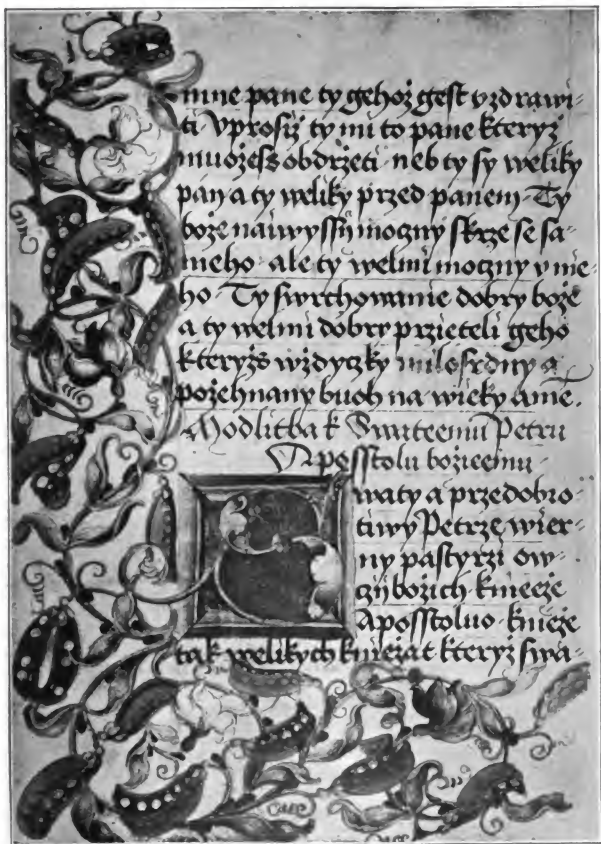 mne pane ty gehož gest vzdrawi-
ti Vprosiž ty mi to pane kteryž
muožess obdržeti · neb ty sy weliky
pán a ty weliky před panem · Ty
bože naiwyssij mocny skrze se sa-
meho · ale ty welmi mocny v nie-
ho · Ty swrchowanie dobry bože
a ty welmi dobry przieteli geho
kteryžs wždyczky milosrdny a
požehnany buoh na wieky amē.
Modlitba k Swateemu Petru
Aposstolu božieemu
waty a przedobro-
tiwy Petrze wier-
ny pastyrzi ow-
czij božich knieeže
Aposstoluo · knieže
tak welikych kniežat kteryž swa-